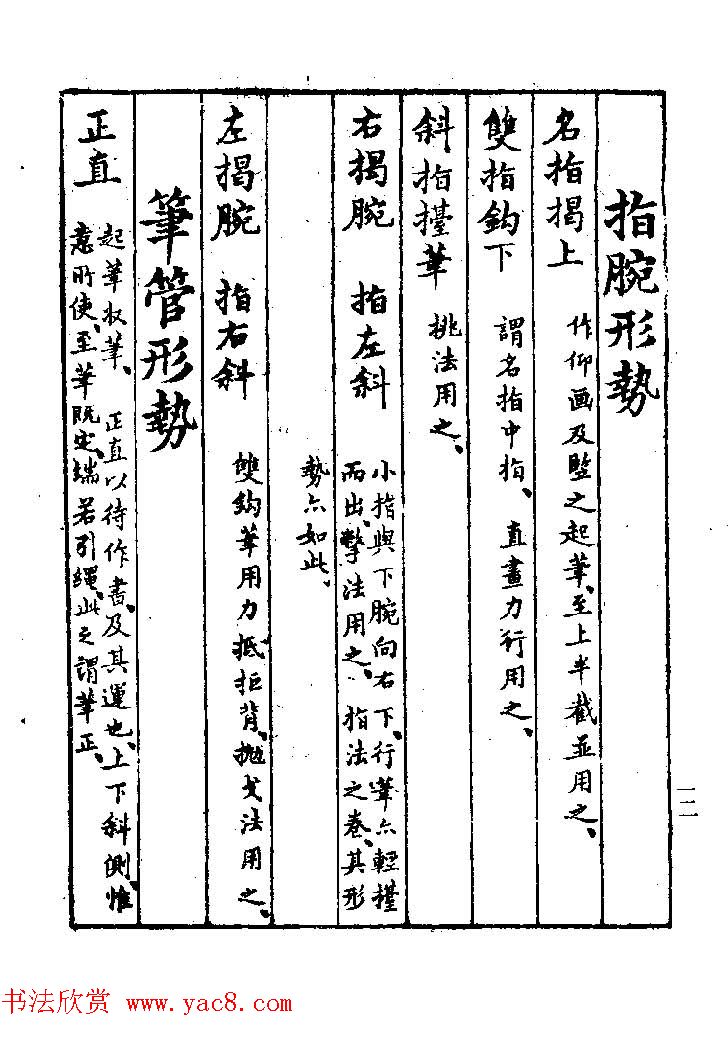 指腕形勢
名指揭上 作仰画及竪之起筆、至上半截並用之、
雙指鈎下 謂名指中指、直畫力行用之、
斜指擡筆 挑法用之、
右揭腕 指左斜 小指與下腕向右下、行筆亦輕擡
而出、擎法用之、指法之卷、其形
勢亦如此、
左揭腕 指右斜 雙鈎筆用力抵拒背、拋戈法用之、
筆管形勢
正直 起筆收筆、正直以待作書、及其運也、上下斜側、惟
意所使、至筆既定、端若引繩、此之謂筆正、
一二
书法欣赏 www.yac8.com